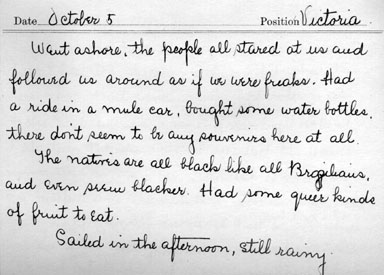 Date October 5 Position Victoria
Went ashore, the people all stared at us and
followed us around as if we were freaks. Had
a ride in a mule car, bought some water bottles.
there don't seem to be any souvenirs here at all.
The natives are all black like all Brazilians,
and even seem blacker. Had some queer kinds
of fruit to eat.
Sailed in the afternoon, still rainy.